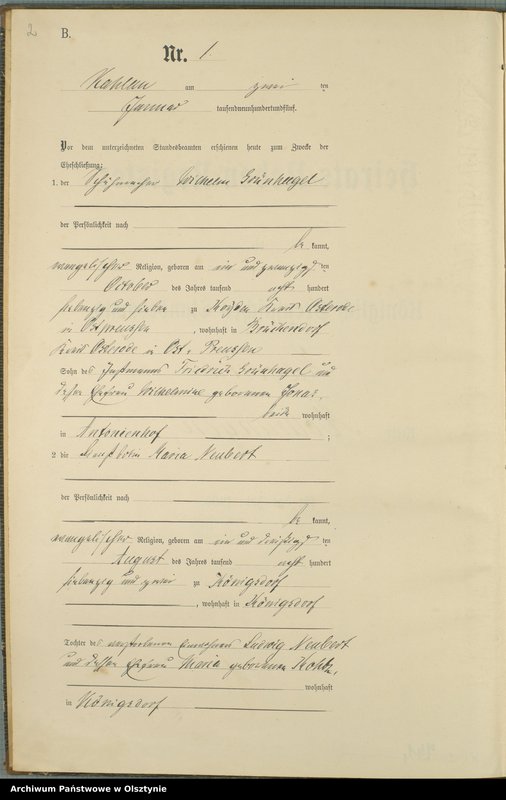 2
B.
Nr. 1
am zwei ten
Januar tausendneunhundertundfünf.
Vor dem unterzeichneten Standesbeamten erschienen heute zum Zwecke der
Eheschließung:
1. der Schuhmacher Wilhelm Grünhagel
der Persönlichkeit nach
be kannt,
evangelischer Religion, geboren am ein und zwanzigs ten
October des Jahres tausend acht hundert
siebenzig und sieben zu Kreis Osterode
in Ostpreussen, wohnhaft in Brückendorf
Kreis Osterode in Ost-Preussen
Sohn des Instmanns Friedrich Grünhagel und
dessen Ehefrau Wilhelmine geborenen Jonas,
beide wohnhaft
in Antonienhof ;
2 die Maria Neubert
der Persönlichkeit nach
be kannt,
evangelischer Religion, geboren am ein und dreißigs ten
August des Jahres tausend acht hundert
siebenzig und zwei zu Königsdorf
, wohnhaft in Königsdorf
Tochter des verstorbenen Einwohners Ludwig Neubert
und dessen Ehefrau Maria geborenen
wohnhaft
in Königsdorf
Archiwum Państwowe w Olsztynie